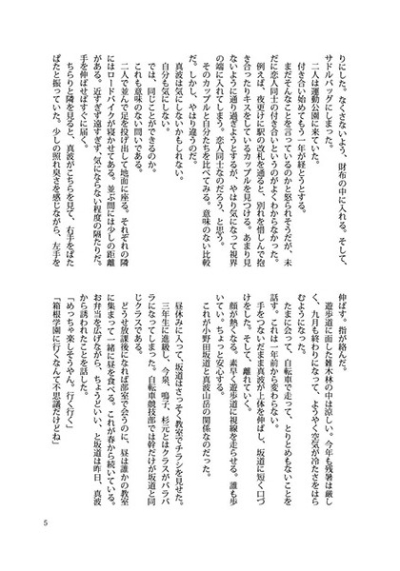 りにした。なくさないよう、財布の中に入れる。そして、
サドルバッグにしまった。
二人は運動公園に来ていた。
付き合い始めてもう一年が経とうとする。
まだそんなことを言っているのかと怒られそうだが、未
だに恋人同士の付き合いというのがよくわからなかった。
例えば、夜更けに駅の改札を通ると、別れを惜しんで抱
き合ったりキスをしているカップルを見つける。あまり見
ないように通り過ぎようとするが、やはり気になって視界
の端に入れてしまう。恋人同士なのだろう、と思う。
そのカップルと自分たちを比べてみる。意味のない比較
だ。しかし、やはり違うのだ。
真波は気にしないかもしれない。
自分も気にしない。
では、同じことができるのか。
これも意味のない問いである。
二人で並んで足を投げ出して地面に座る。それぞれの隣
にはロードバイクが寝かせてある。並ぶ間には少しの距離
がある。近すぎず遠すぎず、気にならない程度の隔たりだ。
手を伸ばせばすぐに届く。
ちらりと隣を見ると、真波がこちらを見て、右手をぱた
ぱたと振っていた。少しの照れ臭さを感じながら、左手を
伸ばす。指が絡んだ。
遊歩道に面した雑木林の中は涼しい。今年も残暑は厳し
く、九月も終わりになって、ようやく空気が冷たさをはら
むようになった。
たまに会って、自転車で走って、とりとめもないことを
話す。これは一年前から変わらない。
手をつないだまま真波が上体を伸ばし、坂道に短く口づ
けをした。そして、離れていく。
顔が熱くなる。素早く遊歩道に視線を走らせる。誰も歩
いてい。ちょっと安心する。
これが小野田坂道と真波山岳の関係なのだった。
昼休みに入って、坂道はさっそく教室でチラシを見せた。
三年生に進級し、今泉、鳴子、杉元とはクラスがバラバ
ラになってしまった。自転車競技部では幹だけが坂道と同
じクラスである。
どうせ放課後になれば部室で会うのに、昼は誰かの教室
に集まって一緒に昼を食べる。これが春から続いている。
お弁当を広げながら、ちょうどいい、と坂道は昨日、真波
から誘われたことを話した。
「めっちゃ楽しそうやん。行く行く」
「箱根学園に行くなんて不思議だけどね」
5